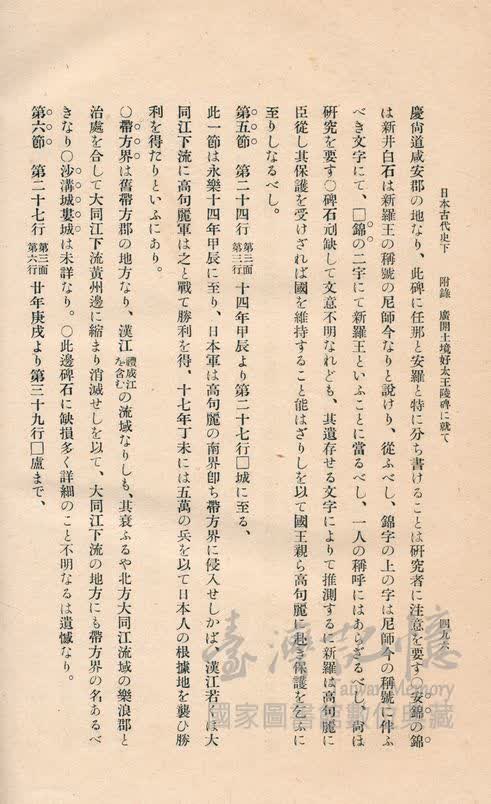 日本古代史下　附錄　廣開土境好太王陵碑に就て　四九六
慶尙道咸安郡の地なり、此碑に任那と安羅と特に分ち書けることは硏究者に注意を要す○安錦の錦
は新井白石は新羅王の稱號の尼師今なりと說けり、從ふべし、錦字の上の字は尼師今の稱號に伴ふ
べき文字にて、□錦の二字にて新羅王といふことに當るべし、一人の稱呼にはあらざるべし、尙ほ
硏究を要す○碑石剜缺して文意不明なれども、其遺存せる文字によりて推測するに新羅は高句麗に
臣從し其保護を受けざれば國を維持すること能はざりしを以て國王親ら高句麗に赴き保護を乞ふに
至りしなるべし。
第五節　第二十四行第三面第三行　十四年甲辰より第二十七行□城に至る、
此一節は永樂十四年甲辰に至り、日本軍は高句麗の南界卽ち帶方界に侵入せしかば、漢江若くは大
同江下流に高句麗軍は之と戰て勝利を得、十七年丁未には五萬の兵を以て日本人の根據地を襲ひ勝
利を得たりといふにあり。
○帶方界は舊帶方郡の地方なり、漢江禮成江を含むの流域なりしも、其衰ふるや北方大同江流域の樂浪郡と
治處を合して大同江下流黃州邊に縮まり消滅せしを以て、大同江下流の地方にも帶方界の名あるべ
きなり○沙溝城婁城は未詳なり。○此邊碑石に缺損多く詳細のこと不明なるは遺憾なり。
第六節　第二十七行第三面第六行　廿年庚戌より第三十九行□盧まで、
臺灣記憶
Taiwan Memory
國家圖書館數位典藏